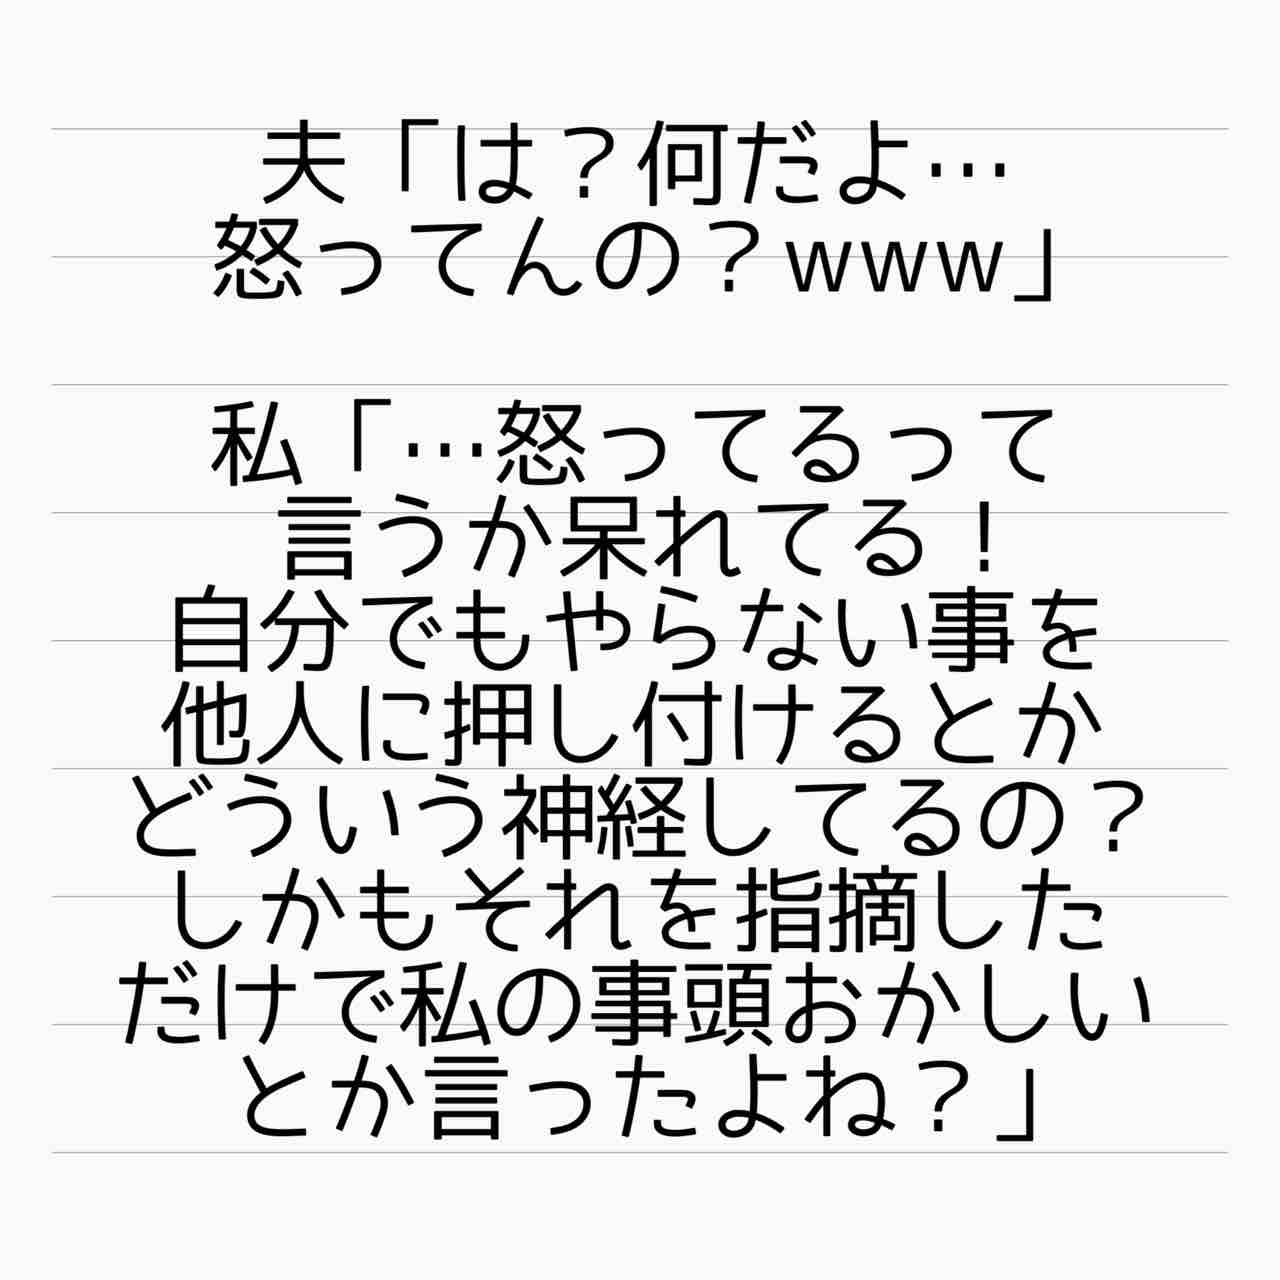 夫「は？何だよ…
怒ってんの？www」
私「…怒ってるって
言うか呆れてる！
自分でもやらない事を
他人に押し付けるとか
どういう神経してるの？
しかもそれを指摘した
だけで私の事頭おかしい
とか言ったよね？」